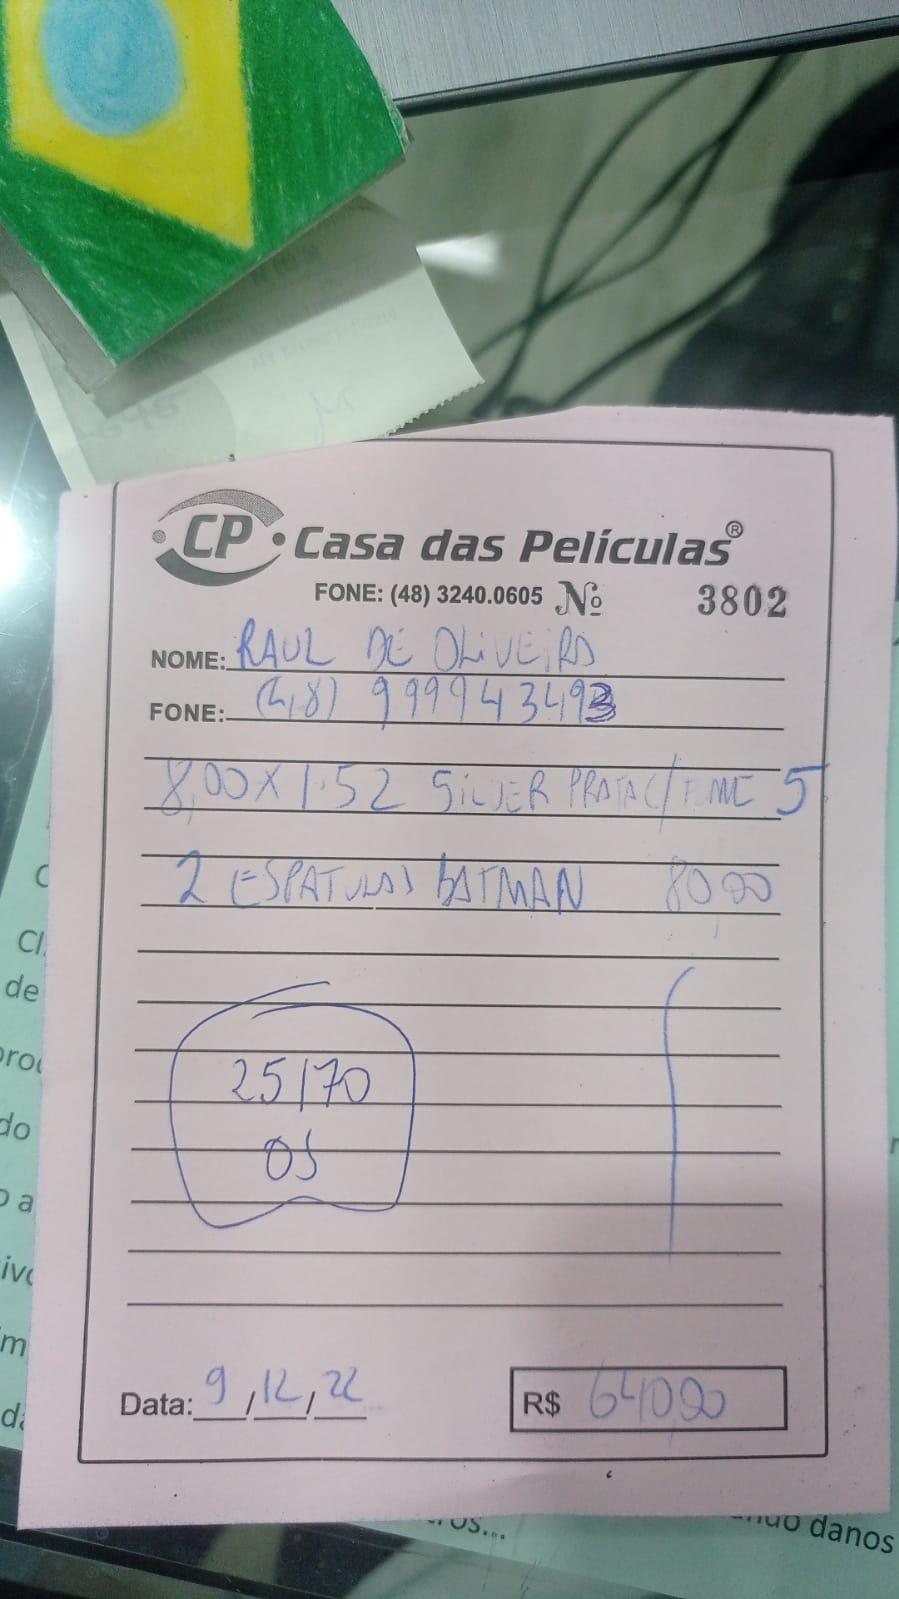 CP Casa das Películas®
FONE: (48) 3240.0605 Nº 3802
NOME: RAUL DE OLIVEIRA
FONE: (48) 999943493
8,00 X 1.52 SILVER PRATA C/ FUME 5
2 ESPATULAS BATMAN 80,00
25170
OS
Data: 9/12/22
R$ 640,00
C
Cl
de
do
o a
danos